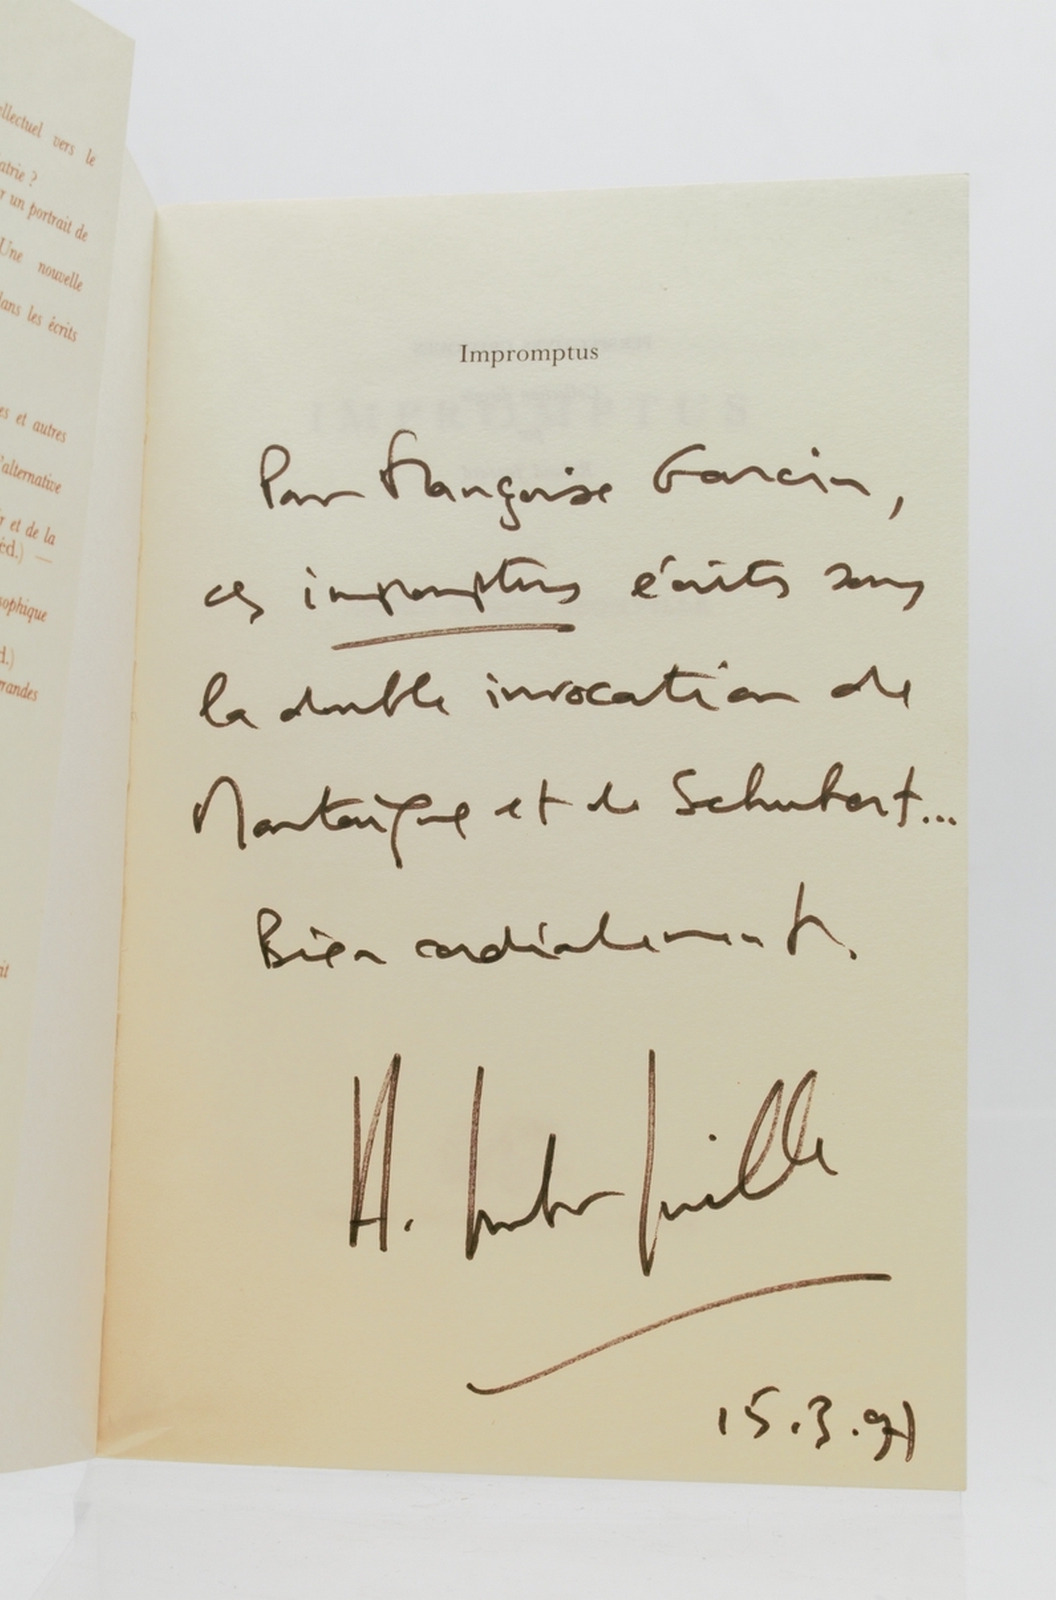 ellectuel vers le
atrie ?
r un portrait de
Une nouvelle
dans les écrits
es et autres
l'alternative
r et de la
éd.) —
sophique
d.)
randes
it
Impromptus
IMPROMPTUS
Pour Françoise Garcin,
ces impromptus écrits sous
la double invocation de
Montaigne et de Schubert...
Bien cordialement.
A.
15.3.91